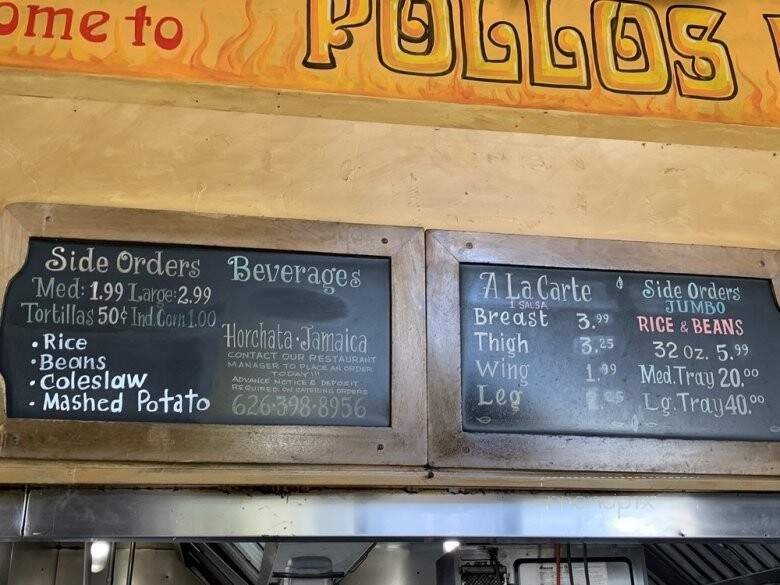 ome to POLLOS
Side Orders
Med: 1.99 Large: 2.99
Tortillas 50¢ Ind. Corn 1.00
• Rice
• Beans
• Coleslaw
• Mashed Potato
Beverages
Horchata • Jamaica
CONTACT OUR RESTAURANT
MANAGER TO PLACE AN ORDER
TODAY!!!
ADVANCE NOTICE & DEPOSIT
REQUIRED ON CATERING ORDERS
626-398-8956
A La Carte
1 SALSA
Breast 3.99
Thigh 3.25
Wing 1.99
Leg
Side Orders
JUMBO
RICE & BEANS
32 oz. 5.99
Med. Tray 20.00
Lg. Tray 40.00